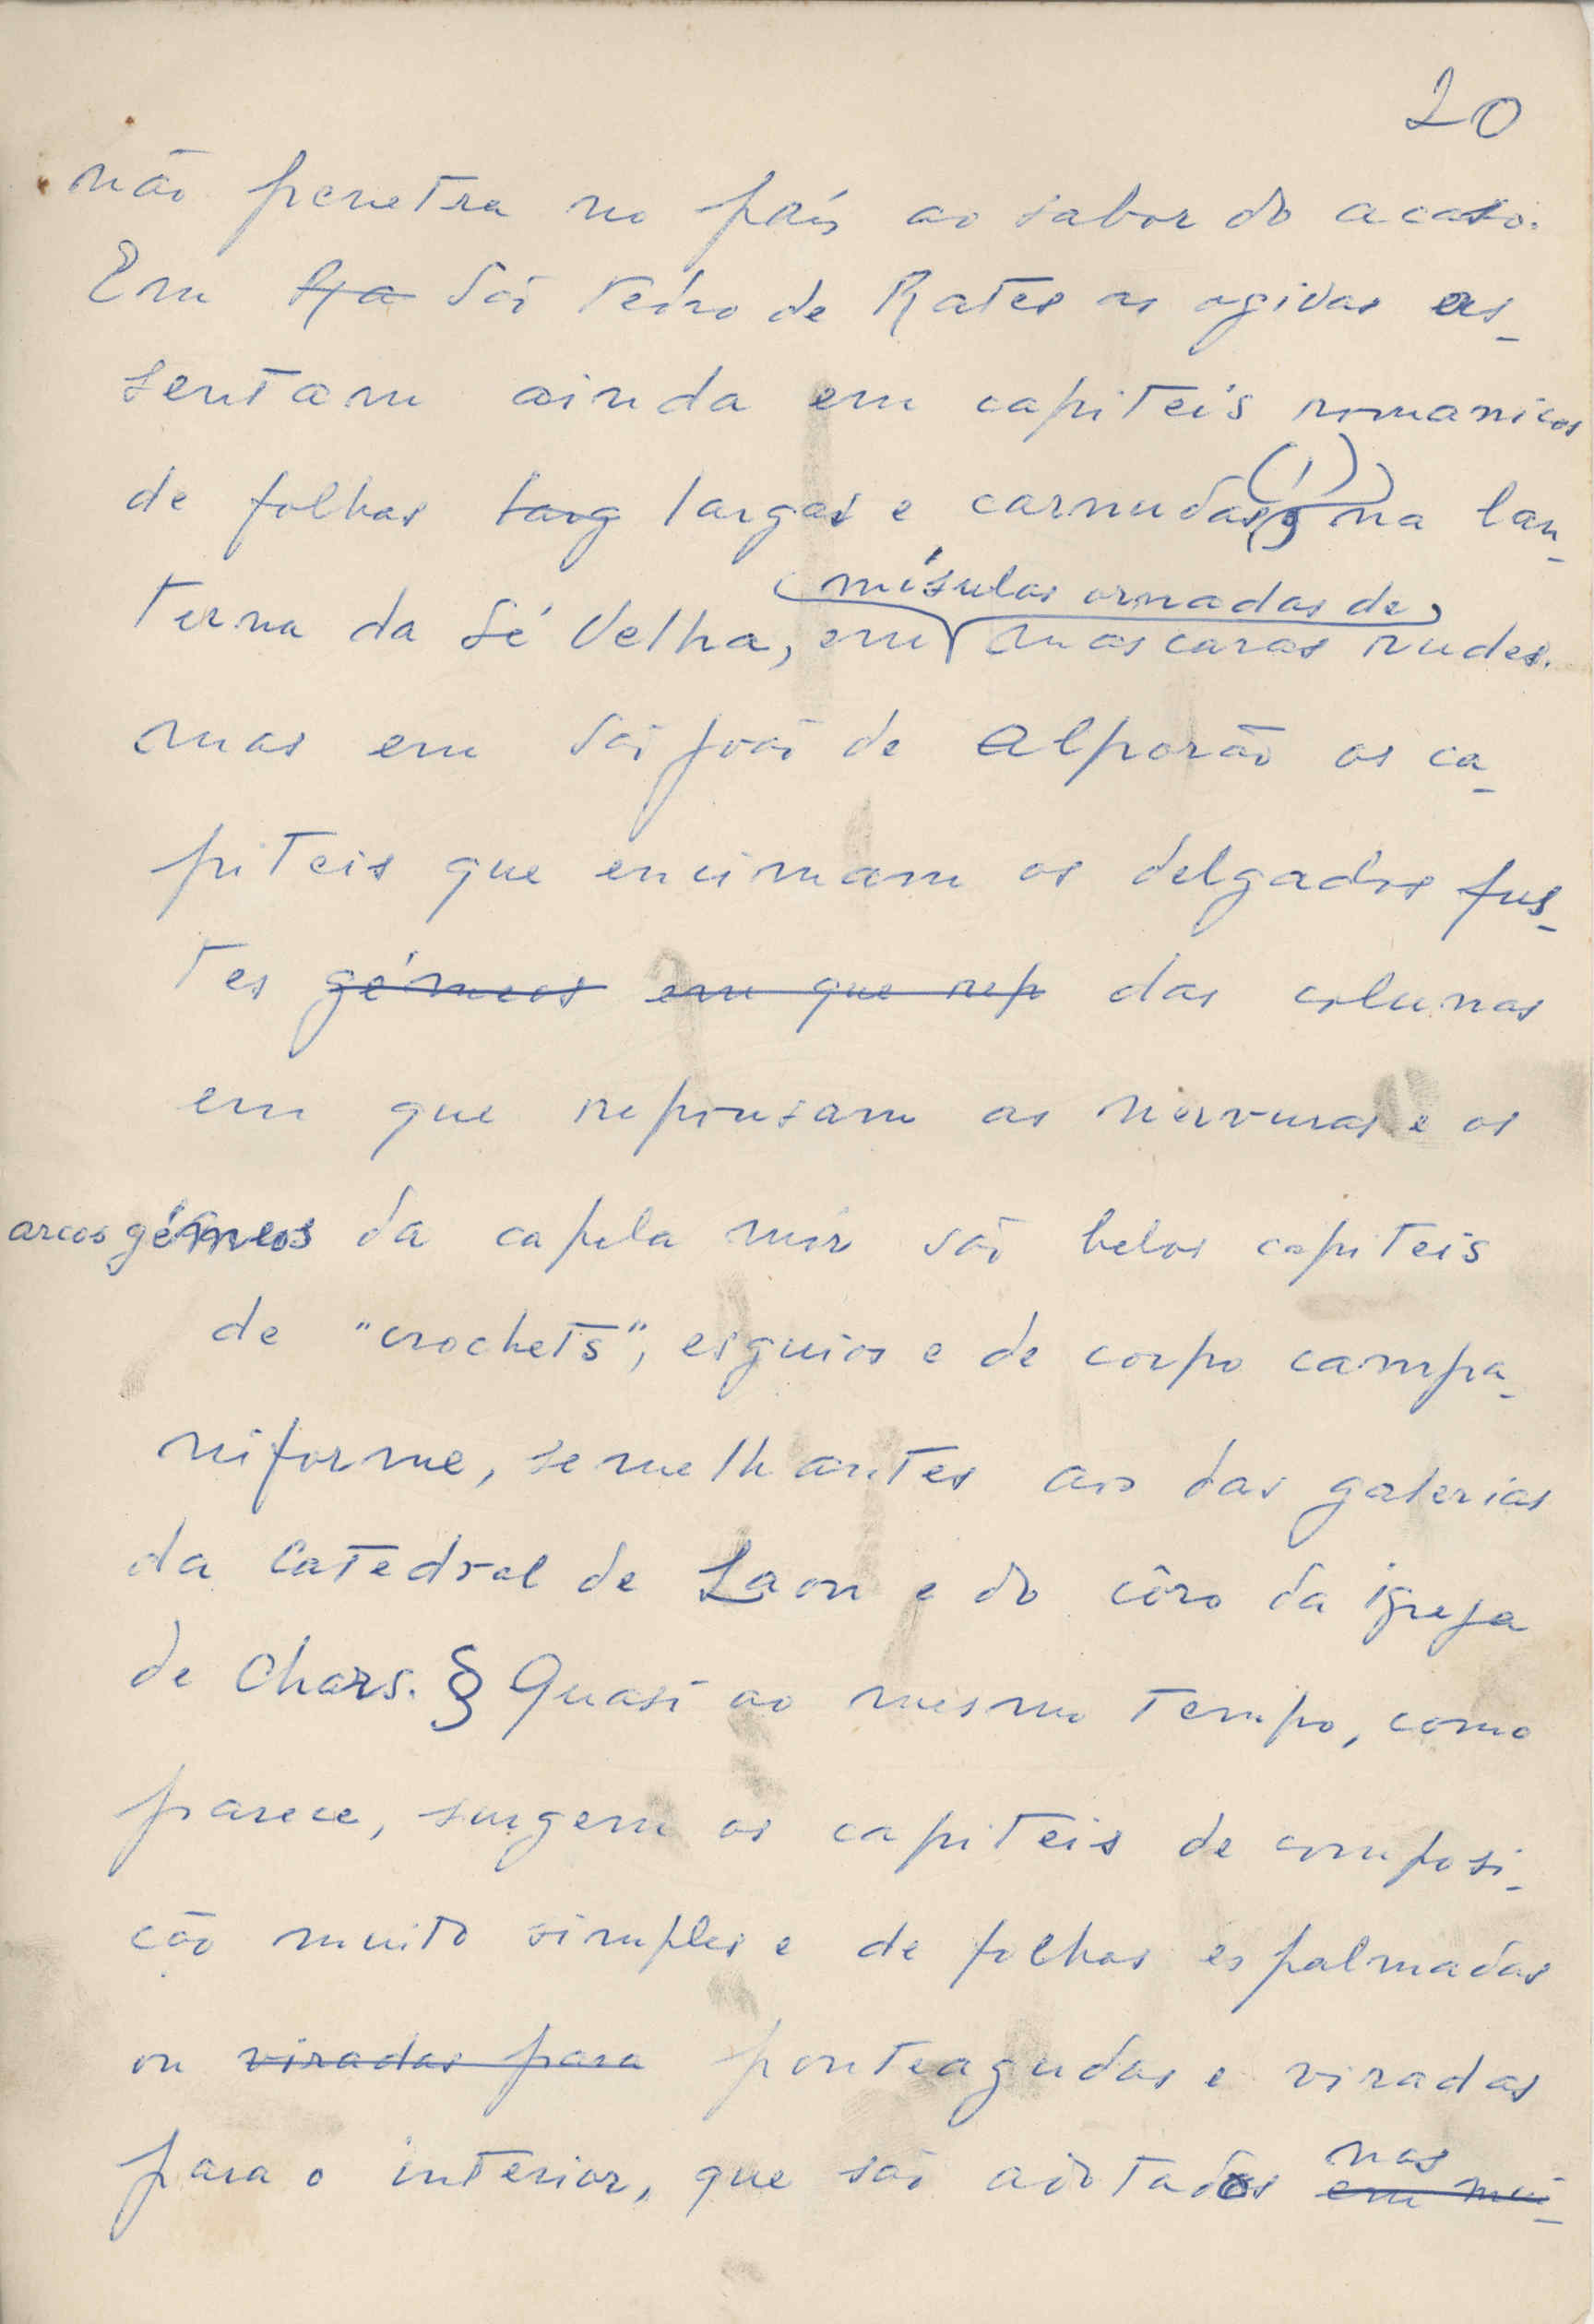 20
não penetra no país ao sabor do acaso.
Em Ra São Pedro de Rates as ogivas as-
sentam ainda em capiteis romanicos
de folhas larg largas e carnudas (1), na lan-
mísulas ornadas de
terna da Sé Velha, em mascaras rudes.
mas em São João de Alporão os ca-
piteis que encimam os delgados fus-
tes gémeos em que rep das colunas
em que repousam as nervuras e os
arcos gémeos da capela mór são belos capiteis
de "crochets", esguios e de corpo campa-
niforme, semelhantes aos das galerias
da Catedral de Laon e do côro da igreja
de Chars. § Quasi ao mesmo tempo, como
parece, surgem os capiteis de composi-
ção muito simples e de folhas espalmadas
ou viradas para ponteagudas e viradas
para o interior, que são adotados nas em mui-